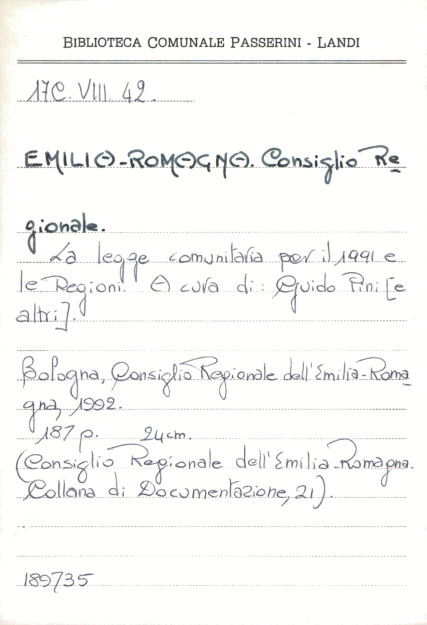 BIBLIOTECA COMUNALE PASSERINI - LANDI
17C. VIII. 42.
EMILIA-ROMAGNA. Consiglio Re
gionale.
La legge comunitaria per il 1991 e
le Regioni. A cura di: Guido Pini [e
altri].
Bologna, Consiglio Regionale dell'Emilia-Roma
gna, 1992.
187 p. 24cm.
(Consiglio Regionale dell'Emilia-Romagna.
Collana di Documentazione, 21).
189735